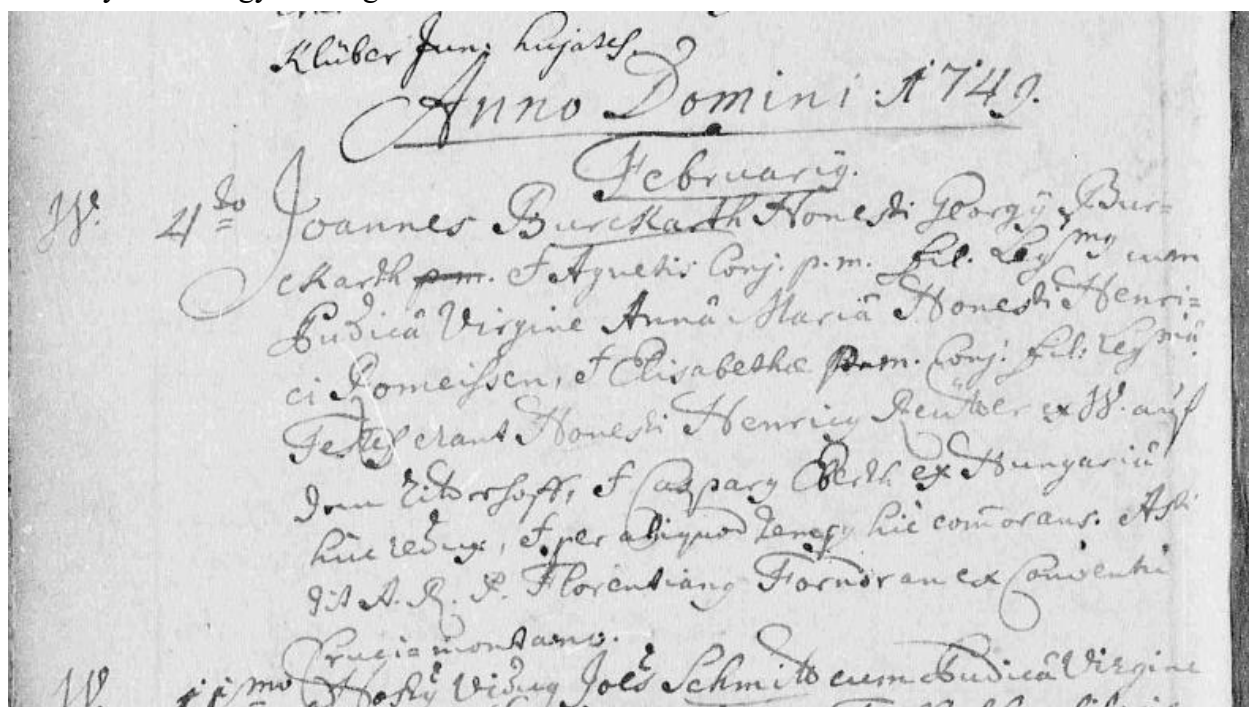 Klüber Jun: hujates.
Anno Domini 1749.
Februarÿ.
W. 4to Joannes Burckarth Honesti Georgÿ Bur=
ckarth p.m. & Agnetis Conj. p.m. fil. Leg mus cum
Pudicâ Virgine Annâ Mariâ Honesti Henri=
ci Romeissen, & Elisabethæ Conj. fil: Leg mâ.
Testes erant Honesti Henricus Reütter ex W. auf
dem hoff, & Casparus Eberth ex Hungariâ
hùc redux, & per aliquod tempus hìc com̄orans. Asti
tit A. R. P. Florentianus Fornoran ex Conventu
Crucis montano.
W. 11mo Viduus Joēs Schmitt cum Pudicâ Virgine